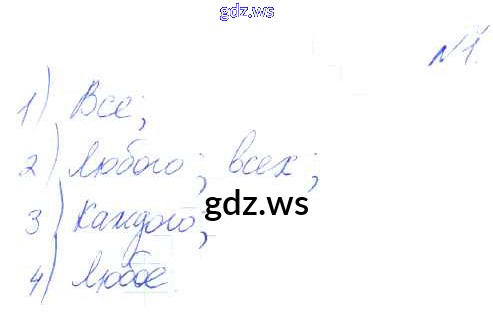 gdz.ws
№1.
1) Все;
2) Любого; всех;
3) Каждого;
gdz.ws
4) Любое.